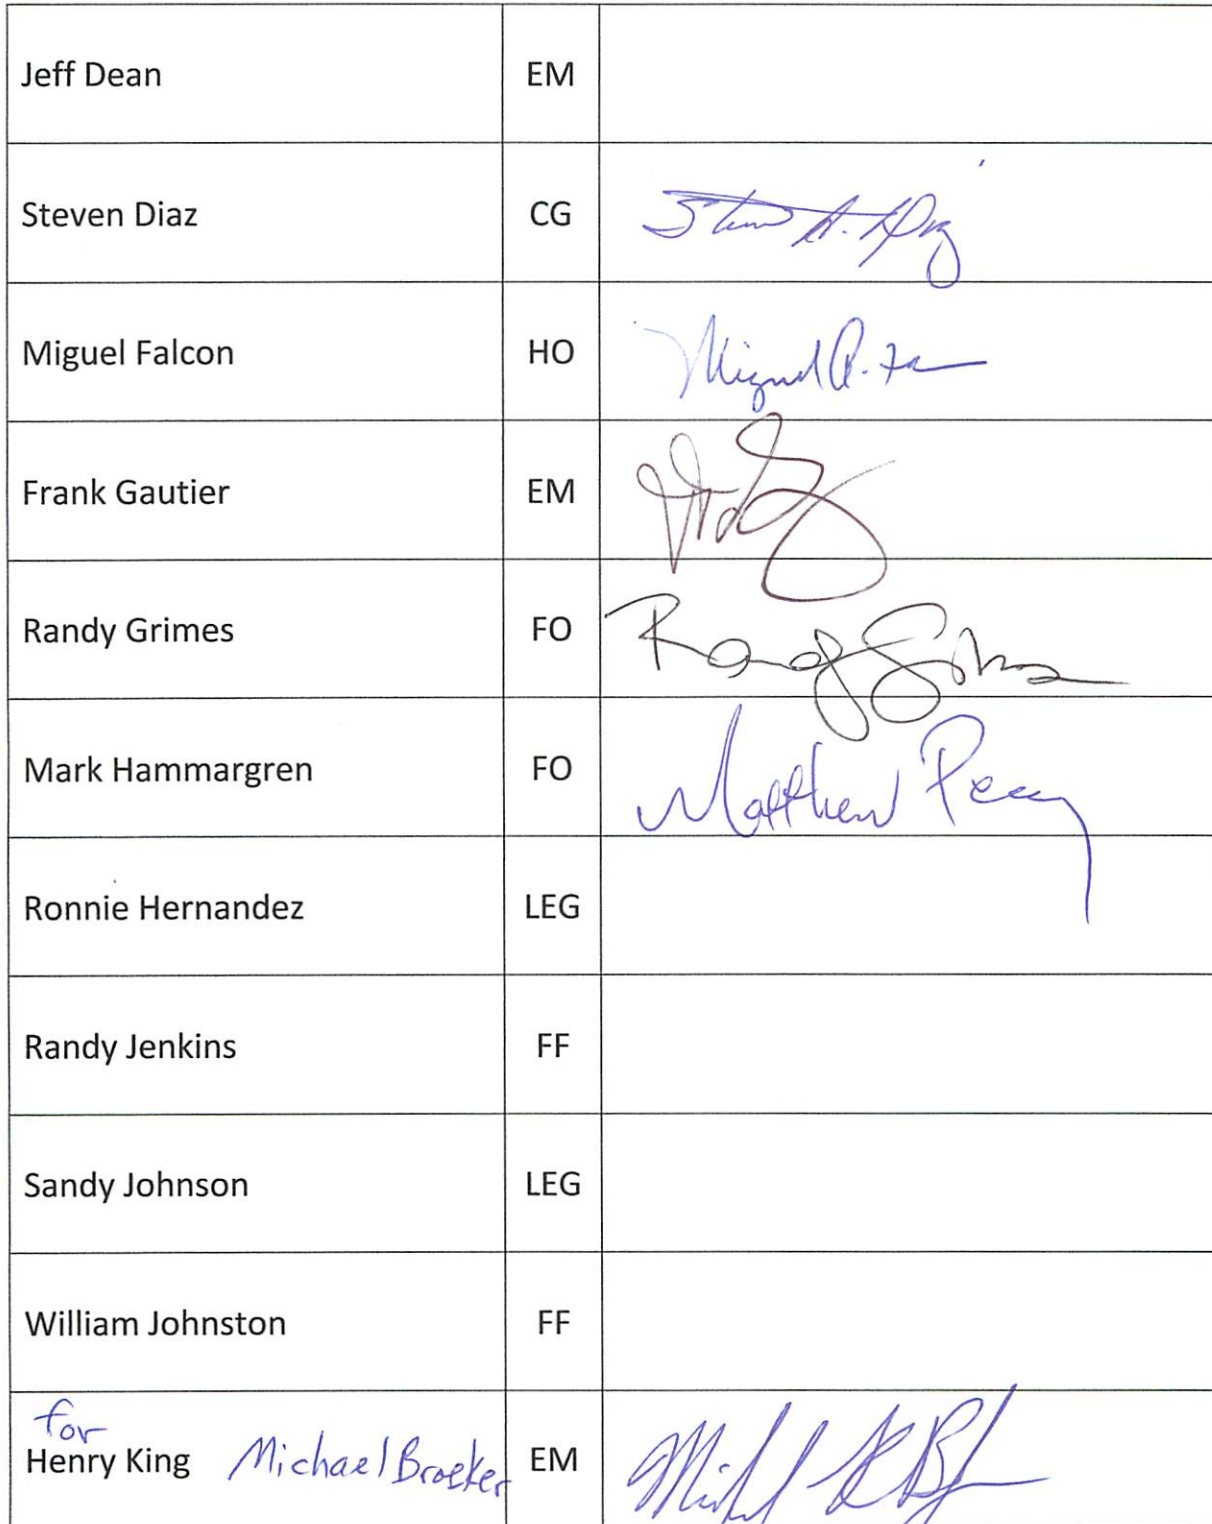 Jeff Dean EM
Steven Diaz CG Steven A. Diaz
Miguel Falcon HO Miguel A. Fa
Frank Gautier EM
Randy Grimes FO Randy Grimes
Mark Hammargren FO Matthew Perry
Ronnie Hernandez LEG
Randy Jenkins FF
Sandy Johnson LEG
William Johnston FF
for
Henry King Michael Broeker EM